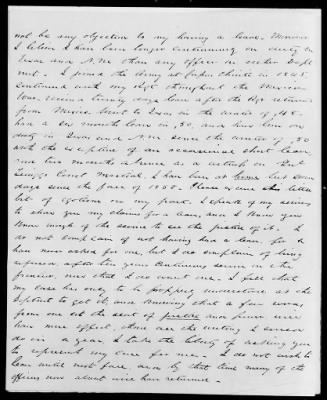 not be any objection to my having a leave. Moreover
I believe I have been longer continuously on duty in
Texas and N.M. than any officer in either Depart
ment. I joined the Army at Corpus Christi in 1845
continued with my Regt throughout the Mexican
War, received twenty days leave after the Regt returned
from Mexico. Went to Texas in the winter of /48.
had a six months leave in /50, and have been on
duty in Texas and N.M. since the winter of /50
with the exception of an occasional short leave,
and two months absence as a witness on Genl
Court Martial. I have been at home but
days since the fall of 1850. Please excuse this little
bit of egotism on my part. I speak of my services
to show you my claims for a leave, and I know you
know enough of the service to see the justice of it. I
do not complain of not having had a leave, for I
have never asked for one, but I do complain of being
refused, after ten years continuous service on the
frontier, now that I do want one. I feel that
my case has only to be properly understood at the
Dept to get it, and knowing that a few words
from one at the seat of justice and power will
have more effect, than all the writing I could
do in a year, I take the liberty of asking you
to represent my case for me. I do not wish to
leave until next fall, and by that time many of the
officers now absent will have returned.